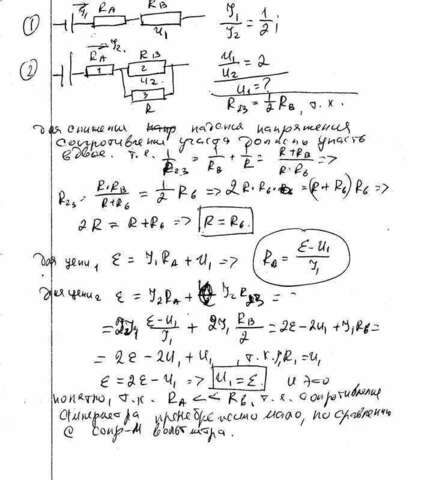 ① I₁ R_A R_B U₁ I₁/I₂ = 1/2;
② I₂ R_A R_B U₂ R 1 2 3 U₁/U₂ = 2
U₁ = ?
R₂₃ = ½ R_B, т.к.
для снижения падения напряжения
сопротивление участка должно упасть
вдвое. т.е. 1/R₂₃ = 1/R_B + 1/R = (R+R_B)/(R·R_B) =>
R₂₃ = (R·R_B)/(R+R_B) = ½ R_B => 2R·R_B = (R+R_B) R_B =>
2R = R+R_B => R = R_B.
для цепи 1 ε = I₁R_A + U₁ => R_A = (ε-U₁)/I₁
для цепи 2 ε = I₂R_A + I₂R₂₃ =
= 2I₁ (ε-U₁)/I₁ + 2I₁ R_B/2 = 2ε-2U₁+I₁R_B =
= 2ε-2U₁+U₁, т.к. I₁R₁=U₁
ε = 2ε-U₁ => U₁=ε. и это
понятно, т.к. R_A << R_B, т.к. сопротивление
амперметра пренебрежимо мало, по сравнению
с сопр-м вольтметра.